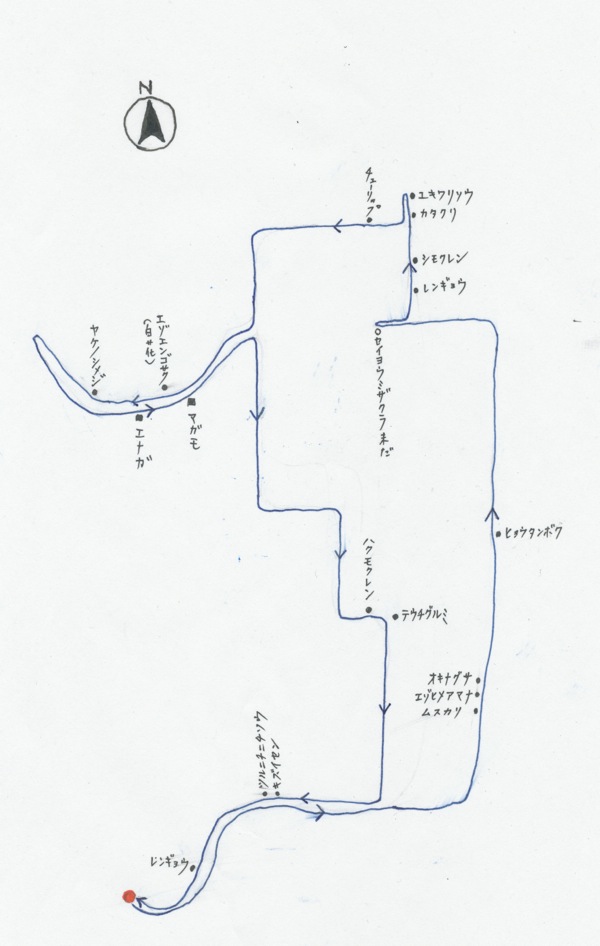 N
チューリップ
ユキワリソウ
カタクリ
シモクレン
レンギョウ
エゾエンゴサク
(白サ花)
ヤケノシメジ
マガモ
エナガ
セイヨウミザクラまだ
ヒョウタンボク
ハクモクレン
テウチグルミ
オキナグサ
エゾヒメアマナ
ムスカリ
ツルニチニチソウ
キズイセン
レンギョウ